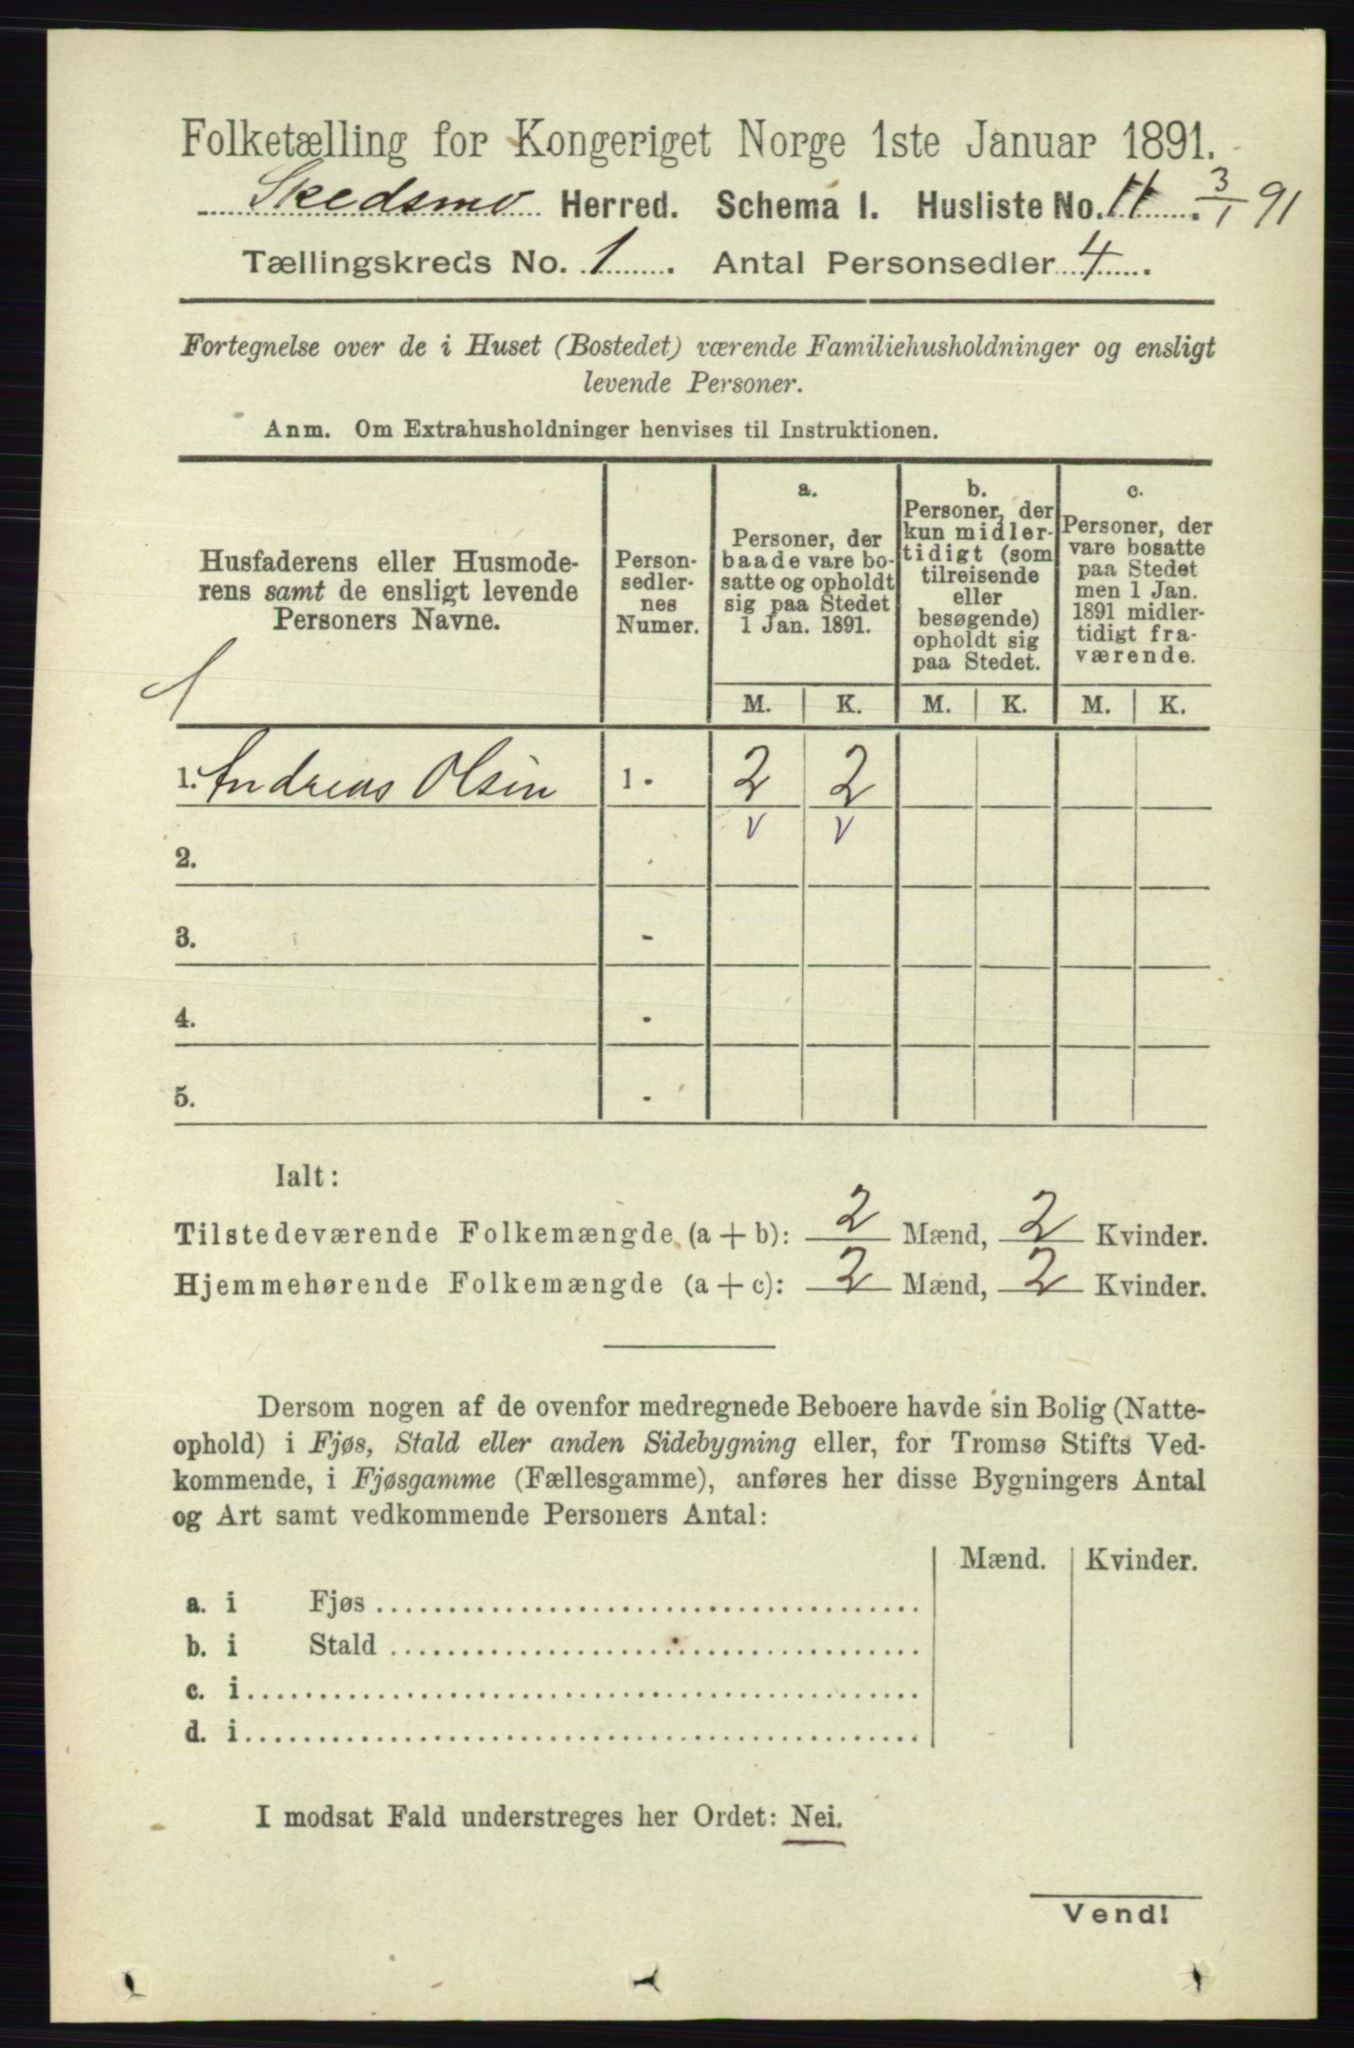 Folketælling for Kongeriget Norge 1ste Januar 1891.
Skedsmo Herred. Schema 1. Husliste No. 11. 3/1 91
Tællingskreds No. 1. Antal Personsedler 4.
Fortegnelse over de i Huset (Bostedet) værende Familiehusholdninger og ensligt
levende Personer.
Anm. Om Extrahusholdninger henvises til Instruktionen.
Husfaderens eller Husmode-
rens samt de ensligt levende
Personers Navne.
Person-
sedler-
nes
Numer.
a.
Personer, der
baade vare bo-
satte og opholdt
sig paa Stedet
1 Jan. 1891.
b.
Personer, der
kun midler-
tidigt (som
tilreisende
eller
besøgende)
opholdt sig
paa Stedet.
c.
Personer, der
vare bosatte
paa Stedet
men 1 Jan.
1891 midler-
tidigt fra-
værende.
M. K. M. K. M. K.
1. Andreas Olsen 1 - 2 2
v v
2.
3. -
4. -
5. -
Ialt:
Tilstedeværende Folkemængde (a + b): 2 Mænd, 2 Kvinder.
Hjemmehørende Folkemængde (a + c): 2 Mænd, 2 Kvinder.
Dersom nogen af de ovenfor medregnede Beboere havde sin Bolig (Natte-
ophold) i Fjøs, Stald eller anden Sidebygning eller, for Tromsø Stifts Ved-
kommende, i Fjøsgamme (Fællesgamme), anføres her disse Bygningers Antal
og Art samt vedkommende Personers Antal:
Mænd. Kvinder.
a. i Fjøs
b. i Stald
c. i
d. i
I modsat Fald understreges her Ordet: Nei.
Vend!